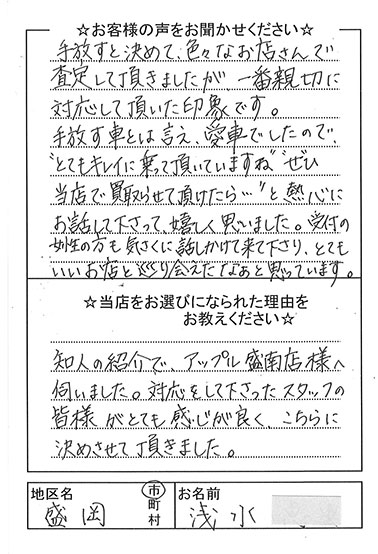 ☆お客様の声をお聞かせください☆
手放すと決めて、色々なお店さんで
査定して頂きましたが、一番親切に
対応して頂いた印象です。
手放す車とは言え、愛車でしたので、
"とてもキレイに乗って頂いていますね" "ぜひ
当店で買取らせて頂けたら…" と熱心に
お話して下さって、嬉しく思いました。受付の
女性の方も気さくに話しかけて来て下さり、とても
いいお店と巡り会えたなぁと思っています。
☆当店をお選びになられた理由を
お教えください☆
知人の紹介で、アップル盛南店様へ
伺いました。対応をして下さったスタッフの
皆様がとても感じが良く、こちらに
決めさせて頂きました。
地区名 盛岡 市 町 村 お名前 浅水